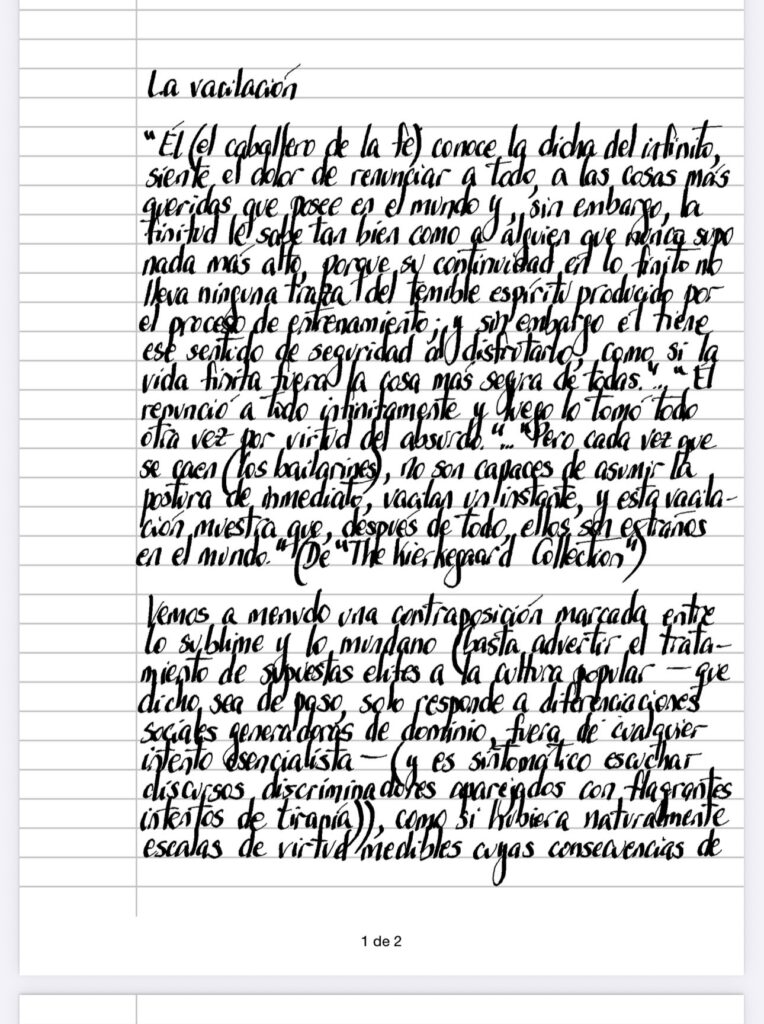 La vacilación
"Él (el caballero de la fe) conoce la dicha del infinito,
siente el dolor de renunciar a todo, a las cosas más
queridas que posee en el mundo y, sin embargo, la
finitud le sabe tan bien como a alguien que nunca supo
nada más alto, porque su continuidad en lo finito no
lleva ninguna traza del temible espíritu producido por
el proceso de entrenamiento; y sin embargo él tiene
ese sentido de seguridad al disfrutarlo, como si la
vida finita fuera la cosa más segra de todas."... "Él
renunció a todo infinitamente y luego lo tomó todo
otra vez por virtud del absurdo."... "Pero cada vez que
se caen (los bailarines), no son capaces de asumir la
postura de inmediato, vacilan un instante, y esta vacila-
ción muestra que, después de todo, ellos son extraños
en el mundo." (De "The Kierkegaard Collection")
Vemos a menudo una contraposición marcada entre
lo sublime y lo mundano (basta advertir el trata-
miento de supuestas elites a la cultura popular — que
dicho sea de paso, solo responde a diferenciaciones
sociales generadoras de dominio, fuera de cualquier
intento esencialista — (y es sintomático escuchar
discursos discriminadores aparejados con flagrantes
intentos de tiranía)), como si hubiera naturalmente
escalas de virtud medibles cuyas consecuencias de
1 de 2